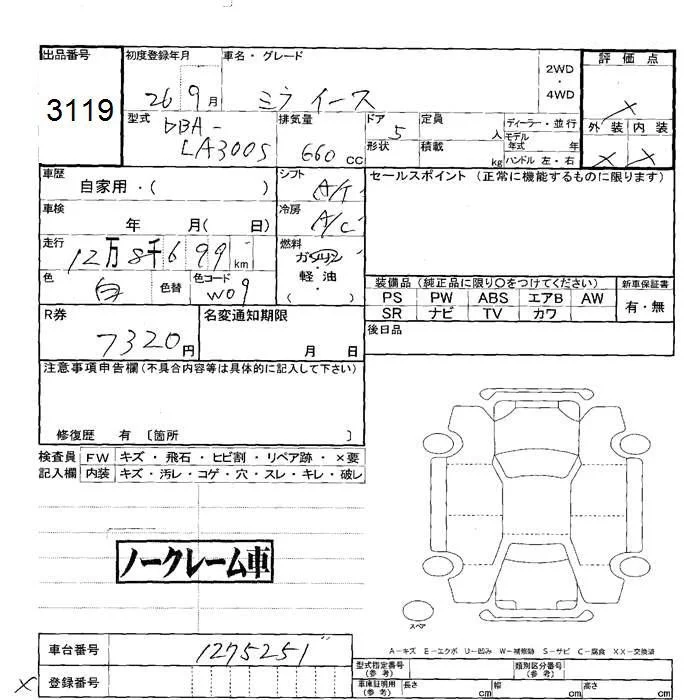 出品番号
3119
初度登録年月
26 9月
車名・グレード
ミラ イース
2WD
・
4WD
評価点
×
外装 内装
× ×
型式
DBA-
LA300S
排気量
660 cc
ドア
5
形状
定員
人
積載
kg
ディーラー・並行
モデル
年式 年
ハンドル 左・右
車歴
自家用・( )
シフト
A/T
セールスポイント (正常に機能するものに限ります)
車検
年 月( 日)
冷房
A/C
走行
12万8千699km
燃料
ガソリン
・
軽・油
( )
色
白
色替
色コード
W09
装備品 (純正品に限り○をつけてください)
PS PW ABS エアB AW
SR ナビ TV カワ
新車保証書
有・無
R券
7320円
名変通知期限
月 日
後日品
注意事項申告欄(不具合内容等は具体的に記入して下さい)
修復歴 有 〔箇所 〕
検査員 FW キズ・飛石・ヒビ割・リペア跡・×要
記入欄 内装 キズ・汚レ・コゲ・穴・スレ・キレ・破レ
ノークレーム車
スペア
A-キズ E-エクボ U-凹み W-補修跡 S-サビ C-腐食 XX-交換済
車台番号
1275251
× 登録番号
型式指定番号
(参考)
類別区分番号
(参考)
車庫証明用
(参考)
長さ cm 幅 cm 高さ cm